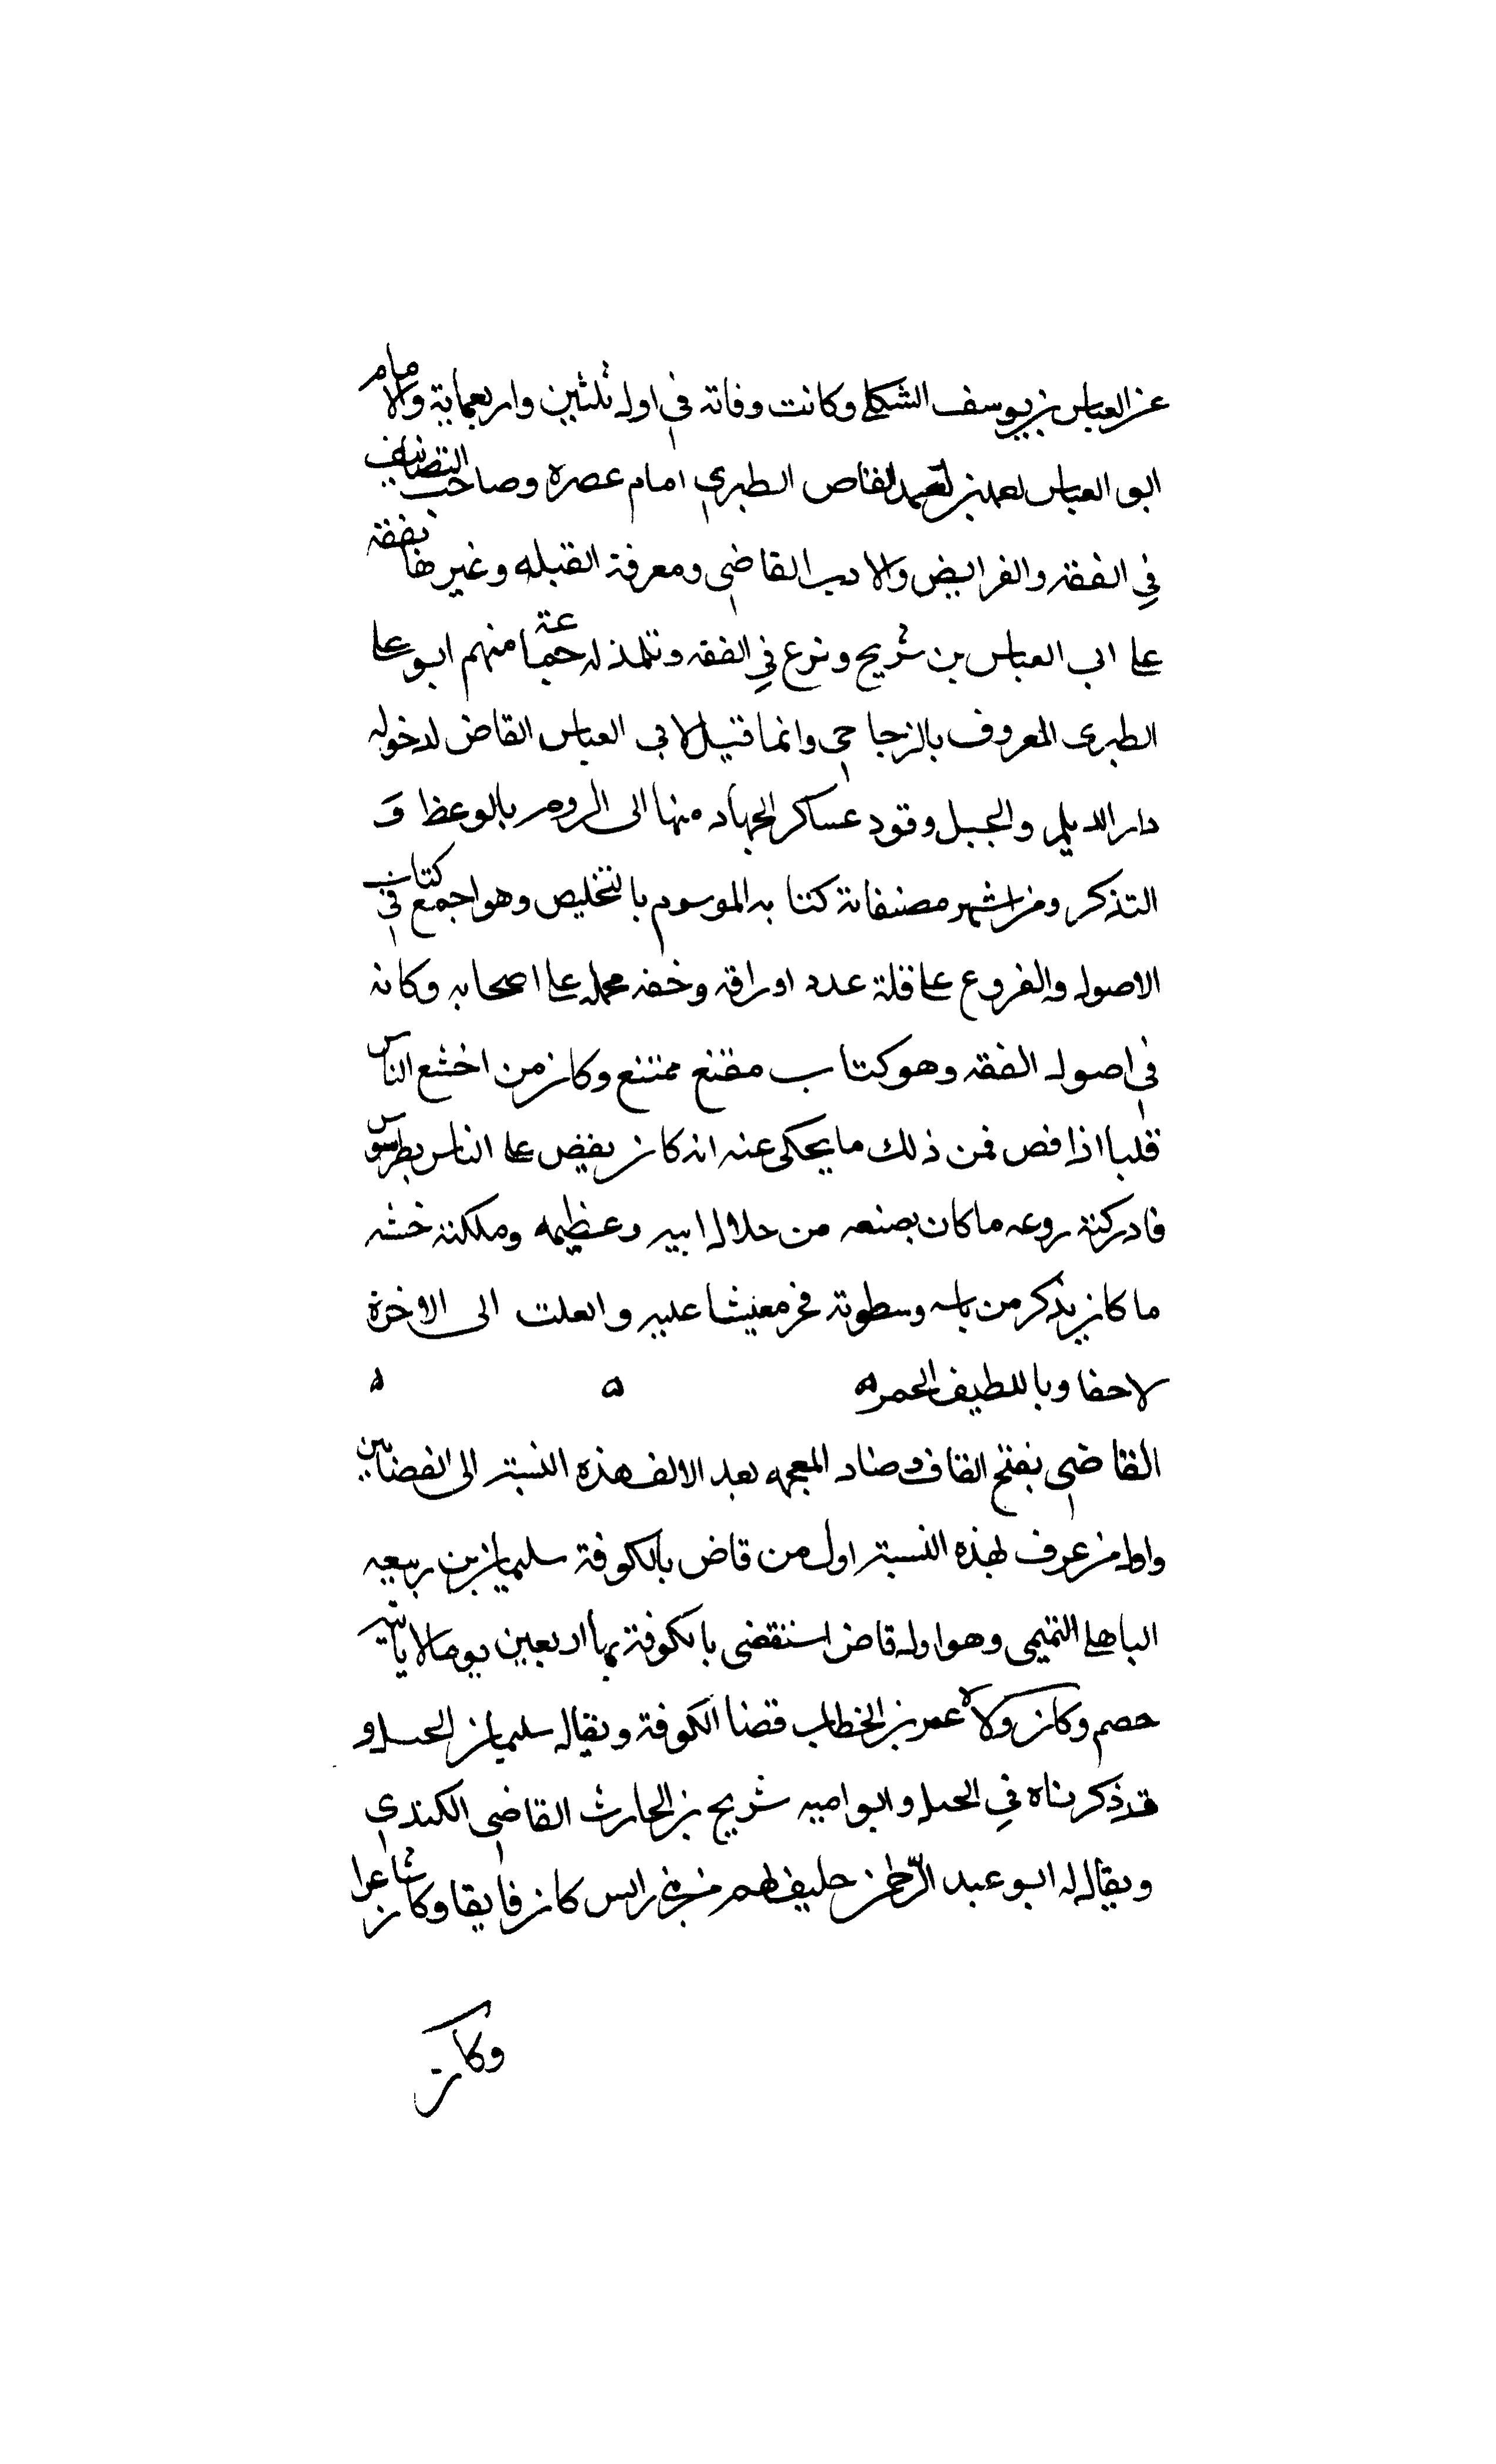 عن العباس بن يوسف الشكلي وكانت وفاته في اول ثلثين واربعماية والامام
ابو العباس احمد بن احمد القاص الطبري امام عصره وصاحب التصانيف
في الفقه والفرايض والادب القاضي ومعرفة القبله وغيرها تفقه
على ابي العباس بن شريح وبرع في الفقه وتلمذ له جماعة منهم ابو على
الطبري المعروف بالزجاجي وانما قيل لابي العباس القاض لدخوله
دار الديلم والجبل وقود عساكر الجهاد منها الى الروم بالوعظ و
التذكر ومن اشهر مصنفاته كتابه الموسوم بالتخليص وهو اجمع كتاب في
الاصول والفروع على قلة عدد اوراقه وخفه محمله على اصحابه وكانه
في اصول الفقه وهو كتاب مقنع ممتنع وكان من اخشع الناس
قلبا اذا قص فمن ذلك ما يحكى عنه انه كان يفيض على الناس بطرسوس
فادركته روعه ما كان يصنعه من جلال ابيه وعظيمه وملكته خشيه
ما كان يذكر من باسه وسطوته فخر مغيشا عليه وانعلت الى الاخرة
لاحقا وباللطيف
القاضي بفتح القاف وضاد المعجمه بعد الالف هذه النسبة الى القضا بين
واول من عرف بهذه النسبة اول من قاض بالكوفة سليمان بن ربيعه
الباهلي التميمي وهو اول قاض استقضى بالكوفة بها اربعين يوما لا ياتيه
خصم وكان ولاه عمر بن الخطاب قضا الكوفة ويقال سليمان الخيل و
قد ذكرناه في الخيل وابو اميه شريح بن الحارث القاضي الكندي
ويقال له ابو عبد الرحمن حليف لهم من بني رايس كان فايقا وكان شاعرا
وكان